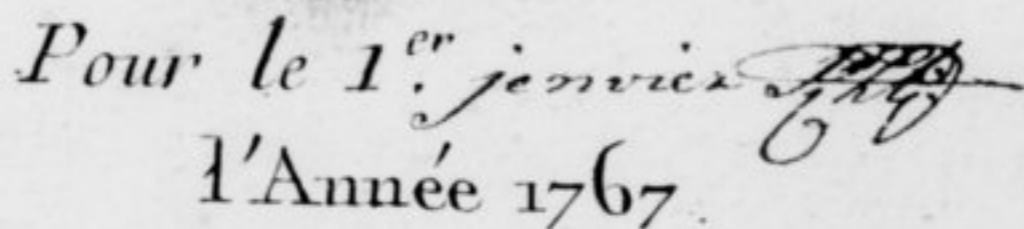 Pour le 1.er jenvier
l'Année 1767.